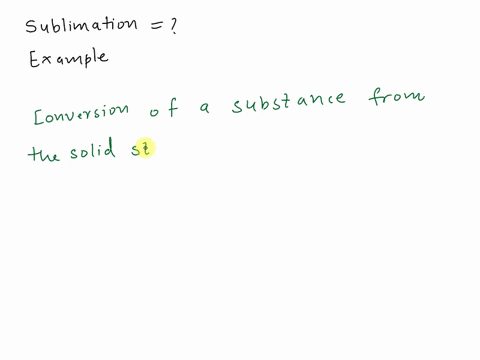 Sublimation = ?
Example
Conversion of a substance from
the solid st